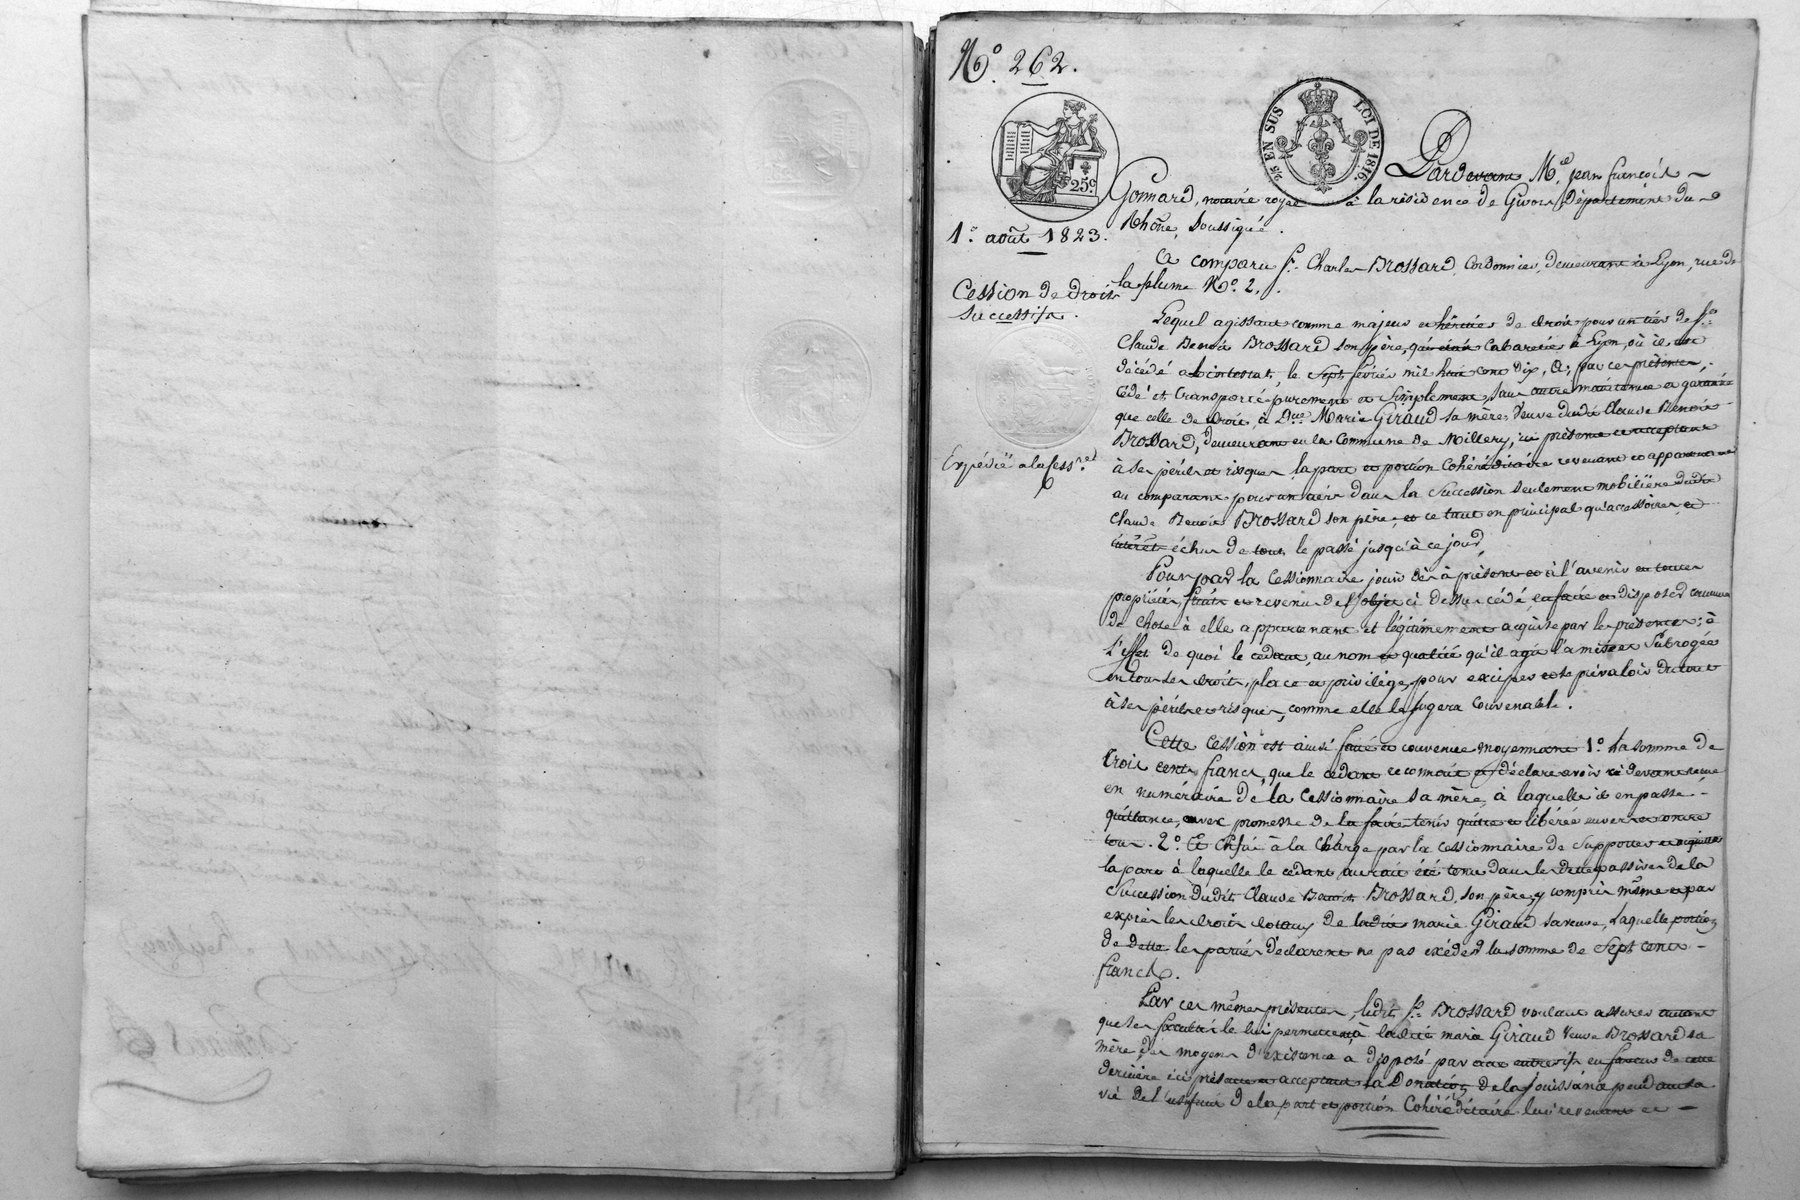 N.º 262.
2/5 EN SUS LOI DE 1816.
25.c
1.er août 1823.
Cession de droits
successifs.
Expédié à la Cessre.
Pardevant M.e jean françois
Gonnard, notaire royal à la résidence de Givors, Département du
Rhône, soussigné.
A comparu S.r Charles Brossard, Cordonnier, demeurant à Lyon, rue de
la plume N.º 2.
Lequel agissant comme majeur et héritier de droit pour un tiers de S.r
Claude Benoit Brossard son père, qui était Cabaretier à Lyon, où il est
décédé ab intestat, le sept février mil huit cent dix, A, par ces présentes,
cédé et transporté purement et simplement, sans autre maintenue et garantie
que celle de droit, à D.me Marie Giraud sa mère, Veuve dudit Claude Benoit
Brossard, demeurant en la Commune de Millery, ici présente et acceptant
à ses périls et risques, la part et portion Cohéréditaire revenant et appartenant
au comparant pour un tiers dans la succession seulement mobilière dudit
Claude Benoit Brossard son père, et ce tant en principal qu'accessoires et
intérêts échus de tout le passé jusqu'à ce jour,
Pour par la Cessionnaire jouir dès à présent et à l'avenir en toute
propriété, fruits et revenus de l'objet ci dessus cédé, en faire et disposer comme
de chose à elle appartenant et légitimement acquise par les présentes; à
l'effet de quoi le cédant, au nom et qualité qu'il agit l'a mise et subrogée
en tous ses droits, place et privilège, pour exciper et se prévaloir du tout
à ses périls et risques, comme elle le jugera convenable.
Cette Cession est ainsi faite et convenue moyennant 1.º la somme de
trois cents francs, que le cédant reconnait et déclare avoir ci devant reçue
en numéraire de la Cessionnaire sa mère, à laquelle il en passe
quittance, avec promesse de la faire tenir quitte et libérée envers et contre
tous. 2.º Et enfin à la charge par la cessionnaire de supporter et acquitter
la part à laquelle le cédant aurait été tenu dans les dettes passives de la
Succession dudit Claude Benoit Brossard, son père, y compris même et par
exprès les droits dotaux de ladite marie Giraud sa veuve, laquelle portion
de dette les parties déclarent ne pas excéder la somme de sept cents
francs.
Par ces mêmes présentes, ledit S.r Brossard voulant assurer autant
que ses facultés le lui permettent, à ladite marie Giraud Veuve Brossard sa
mère, des moyens d'existence, a disposé par acte entrevifs en faveur de cette
dernière ici présente et acceptant la Donation de la jouissance pendant sa
vie de l'usufruit de la part et portion Cohéréditaire lui revenant et